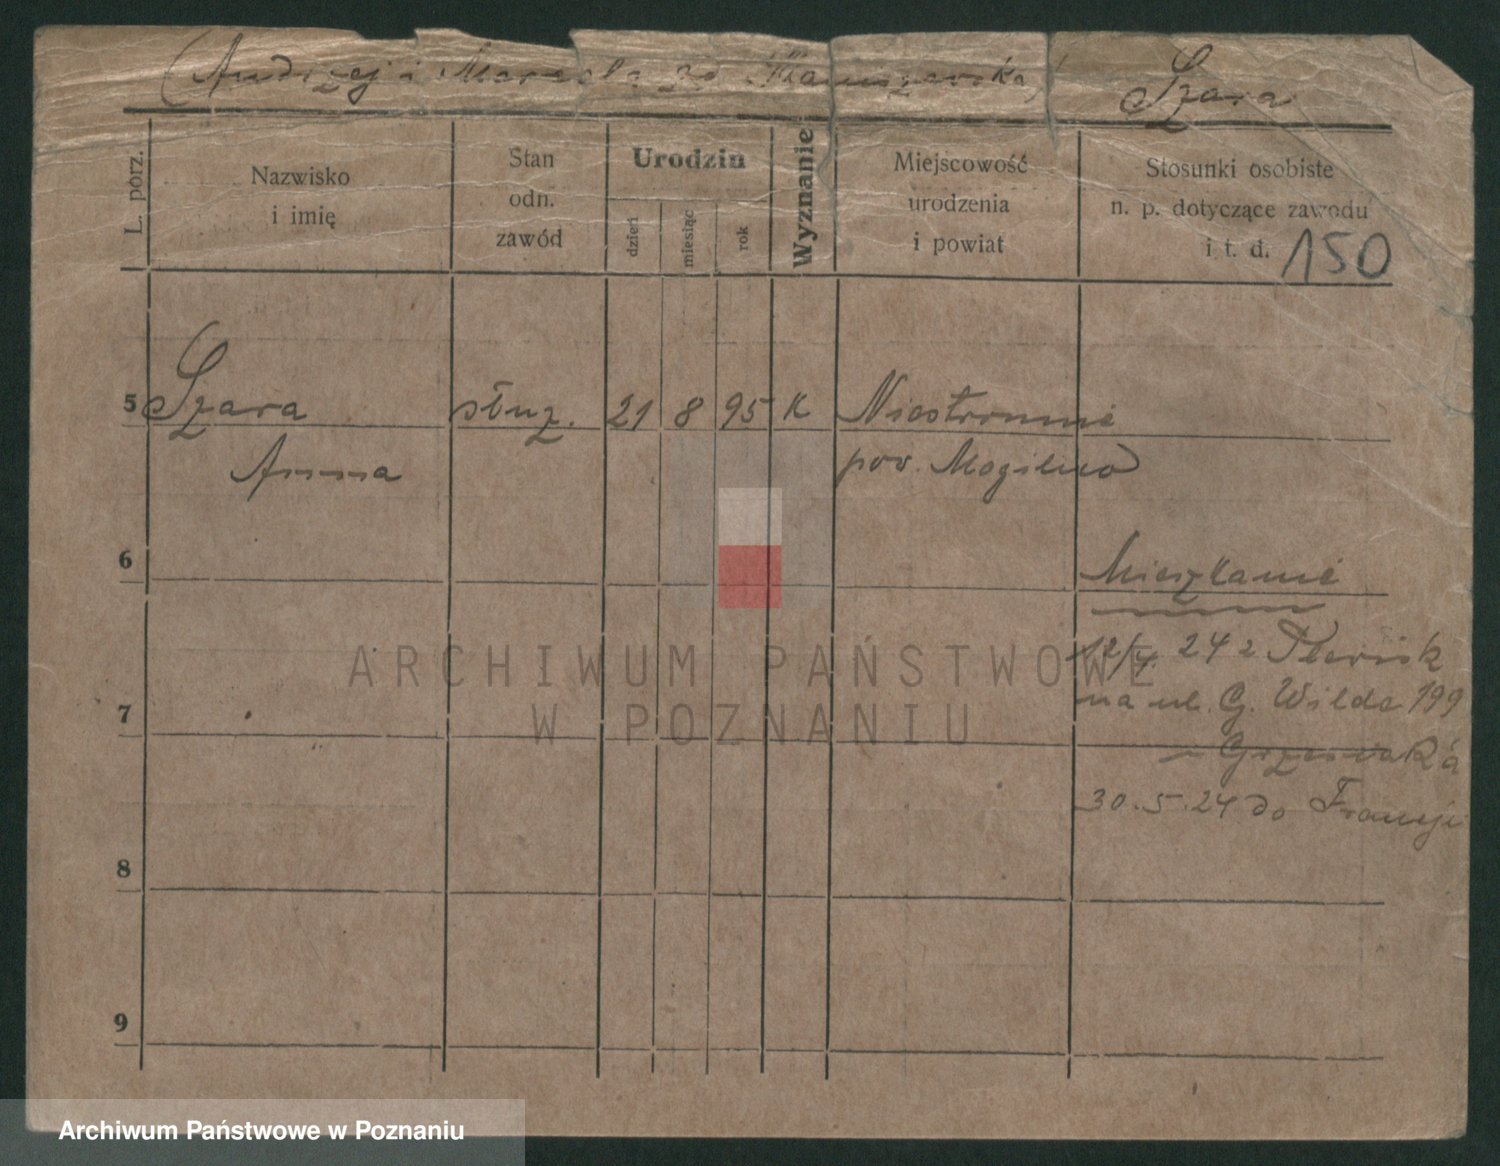 (Andrzej i
Szara
L. porz.
Nazwisko
i imię
Stan
odn.
zawód
Urodzin
dzień
miesiąc
rok
Wyznanie
Miejscowość
urodzenia
i powiat
Stosunki osobiste
n. p. dotyczące zawodu
i t. d.
150
5 Szara służ. 21 8 95 K Niestronnie
Anna pow. Mogilno
6
Mieszkanie
12/4. 24 z
7
na ul. G. Wilda 199
30.5.24 do Francji
8
9
ARCHIWUM PAŃSTWOWE
W POZNANIU
Archiwum Państwowe w Poznaniu